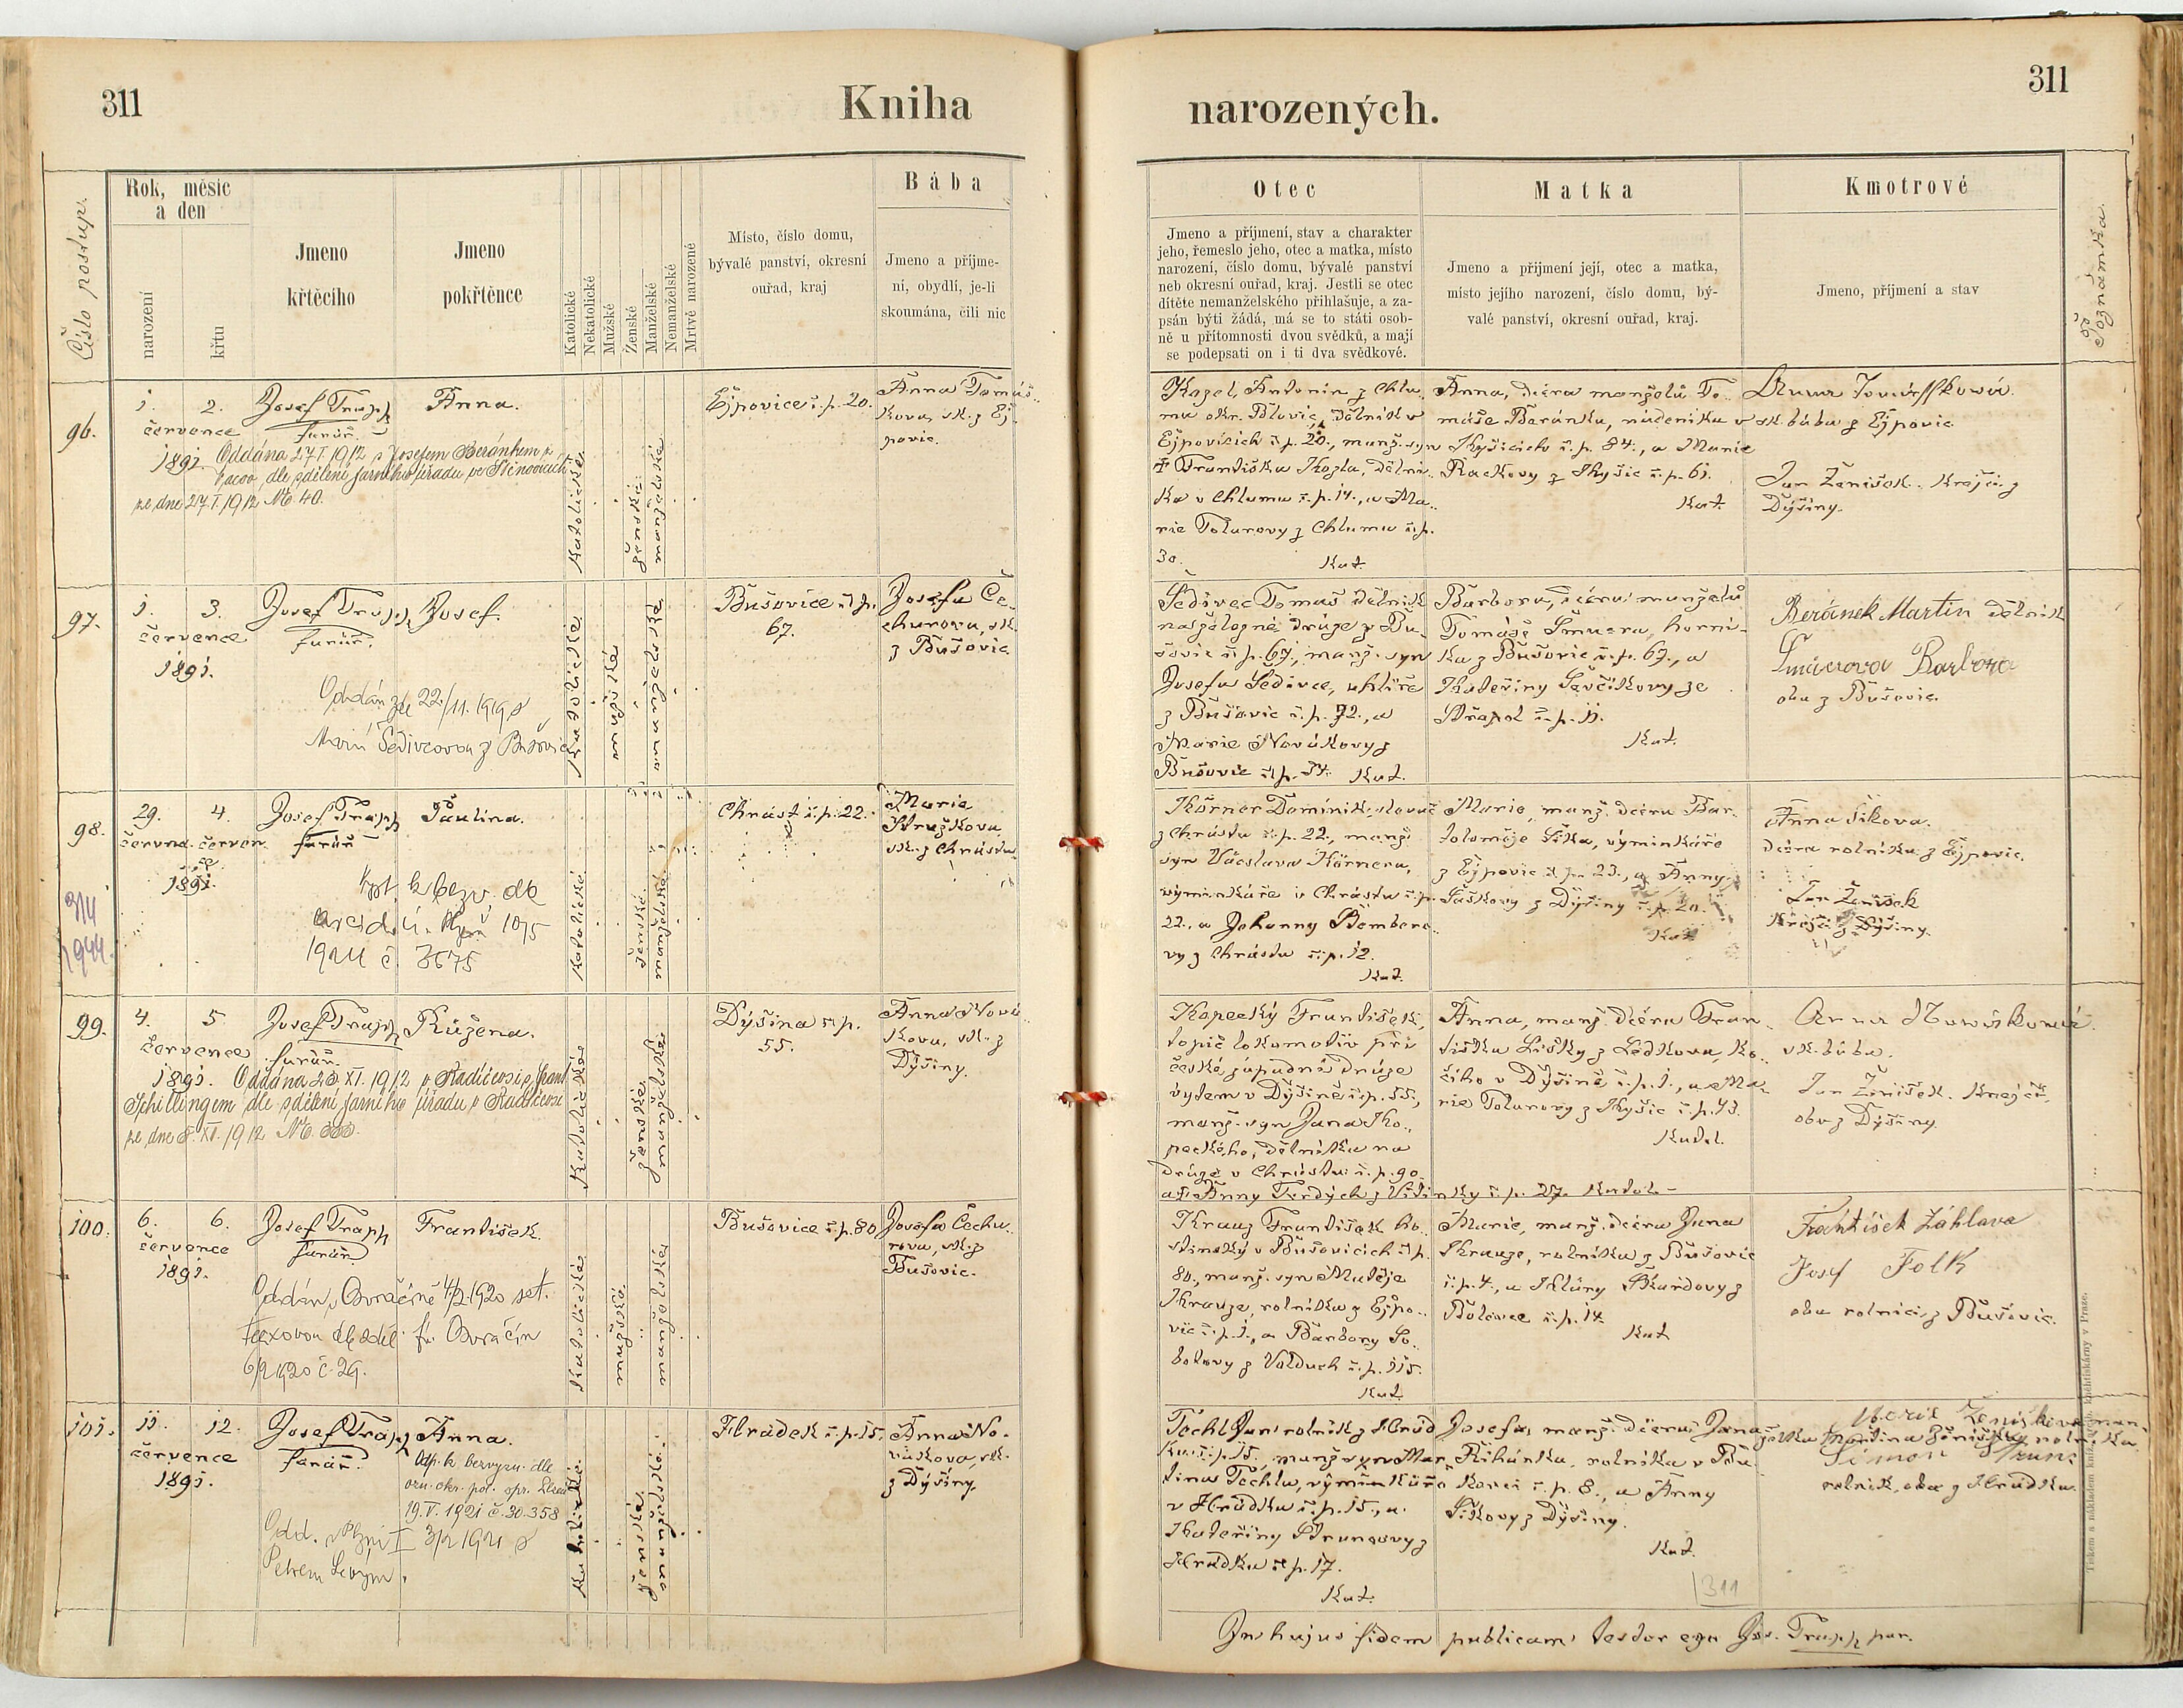 311
Kniha
narozených.
311
Číslo postup.
Rok, měsíc
a den
narození
křtu
Jmeno
křtěcího
Jmeno
pokřtěnce
Katolické
Nekatolické
Mužské
Ženské
Manželské
Nemanželské
Mrtvě narozené
Místo, číslo domu,
bývalé panství, okresní
ouřad, kraj
Bába
Jmeno a příjme-
ní, obydlí, je-li
skoumána, čili nic
Otec
Jmeno a příjmení, stav a charakter
jeho, řemeslo jeho, otec a matka, místo
narození, číslo domu, bývalé panství
neb okresní ouřad, kraj. Jestli se otec
dítěte nemanželského přihlašuje, a za-
psán býti žádá, má se to státi osob-
ně u přítomnosti dvou svědků, a mají
se podepsati on i ti dva svědkové.
Matka
Jmeno a přijmení její, otec a matka,
místo jejího narození, číslo domu, bý-
valé panství, okresní ouřad, kraj.
Kmotrové
Jmeno, příjmení a stav
Poznámka.
96.
1. 2.
července
1891.
Josef Trapp
farář.
Anna.
Oddána 27.I.1912 s Josefem Beránkem
dle sdělení farního úřadu ve Stěnovicích
ze dne 27.I.1912 No. 40.
Katolické
ženské
manželské
Ejpovice č. p. 20.
Anna Tomáš-
kova, zk. z Ej-
povic.
Kozel, Antonín z Chlu-
mu okr. Blovic, dělník v
Ejpovicích č. p. 20., manž. syn
† Františka Kozla, dělní-
ka v Chlumu č. p. 14., a Ma-
rie Tolarovy z Chlumu č. p.
30.
Kat.
Anna, dcera manželů To-
máše Beránka, nádeníka v
Kyšicích č. p. 84., a Marie
Rackovy z Kyšic č. p. 61.
Kat.
zk. bába z Ejpovic
Jan Ženíšek. Krejčí z
Dýšiny.
97.
1. 3.
července
1891.
Josef Trapp
farář.
Josef.
Oddán zde 22./11. 1919 s
Marií Šedivcovou z Bušovic
Katolické
mužské
manželské
Bušovice č. p.
67.
Josefa Če-
churova, zk.
z Bušovic
Šedivec Tomáš dělník
na železné dráze z Bu-
šovic č. p. 67., manž. syn
Josefa Šedivce, uhlíře
z Bušovic č. p. 72., a
Marie Novákovy z
Bušovic č. p. 34. Kat.
Barbora, dcera manželů
Tomáše Šmucra, horní-
ka z Bušovic č. p. 67., a
Kateřiny Ševčíkovy ze
Střapol č. p. 11.
Kat.
Beránek Martin dělník
Barbora
oba z Bušovic.
98.
29. 4.
června. červen-
ce
1891.
Josef Trapp
farář
Paulina.
1944 č. 3675
314
1944.
Katolické
ženské
manželské
Chrást č. p. 22.
Marie
Stružkova,
zk. z Chrástu
Körner Dominik,
z Chrástu č. p. 22., manž.
syn Václava Körnera,
výminkáře v Chrástu č. p.
22., a Johanny
vy z Chrástu č. p. 12.
Kat.
Marie, manž. dcera Bar-
toloměje Šika, výminkáře
z Ejpovic č. p. 23., a Anny
Šaškovy z Dýšiny č. p. 20.
Kat.
Anna Šikova.
dcera rolníka z Ejpovic.
Jan Ženíšek
Krejčí z Dýšiny.
99.
4. 5
července
1891.
Josef Trapp
farář.
Růžena.
Oddána XI. 1912 v Radčicích s Frant.
Schillingem dle sdělení farního úřadu v Radčicích
ze dne XI. 1912 No.
Katolické
ženské
manželské
Dýšina č. p.
55.
Anna Nová-
kova, zk. z
Dýšiny.
Kopecký František,
topič lokomotiv při
české západní dráze
bytem v Dýšině č. p. 55.,
manž. syn Jana Ko-
peckého, dělníka na
dráze v Chrástu č. p. 90.,
a Anny Tvrdých z Vídinky č. p. 27. Katol.
Anna, manž. dcera Fran-
tiška Lišky z Ledkova, ko-
čího v Dýšině č. p. 1., a Ma-
rie Tolarovy z Kyšic č. p. 43.
Katol.
Anna Nowákowá.
zk. bába.
Jan Ženíšek. Krejčí,
oba z Dýšiny.
100.
6. 6.
července
1891.
Josef Trapp
farář
František.
Oddán v Osvračíně 4/2 1920
dle sděl. f. ú. Osvračín
6/2 1920 č. 29.
Katolické
mužské
manželské
Bušovice č. p. 80
Josefa Čechu-
rova, zk. z
Bušovic.
Krauz František ho-
stinský v Bušovicích č. p.
80., manž. syn Matěje
Krauze, rolníka z Ejpo-
vic č. p. 1., a Barbory So-
botovy z Volduch č. p. 115.
Kat.
Marie, manž. dcera Jana
Krauze, rolníka z Bušovic
č. p. 4., a Kláry
č. p. 14.
Kat
František Záhlava
Josef Folk
oba rolníci, z Bušovic.
101.
11. 12.
července
1891.
Josef Trapp
farář.
Anna.
Odp. k bezvyzn. dle
ozn. okr. pol. spr. Plzeň
19. V. 1921 č. 30.358
Odd. v Plzni I 3/2 1921 s
Petrem Levým.
Katolické
ženské
manželské
Hrádek č. p. 15.
Anna No-
vákova, zk.
z Dýšiny.
Tochl Jan rolník z Hrád-
ku č. p. 15., manž. syn Mar-
tina Tochla, výminkáře
v Hrádku č. p. 15., a
Kateřiny Strunzovy z
Hrádku č. p. 17.
Kat.
Josefa, manž. dcera Jana
Řihánka, rolníka v
č. p. 8., a Anny
Šikovy z Dýšiny.
Kat.
Marie Ženíškova man-
želka Martina Ženíška, rolníka
Šimon Strunz
rolník, oba z Hrádku.
311
In hujus fidem publicam testor ego Jos. Trapp par.